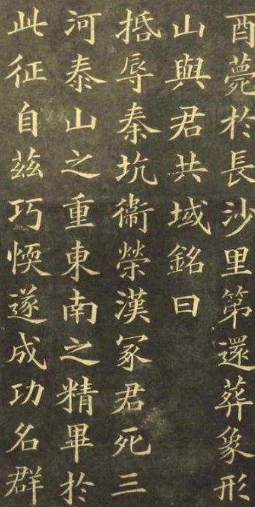 酉薨於長沙里第還葬象形
山與君共域銘曰
抵辱秦坑衛榮漢冢君死三
河泰山之重東南之精畢於
此征自茲巧愞遂成功名群